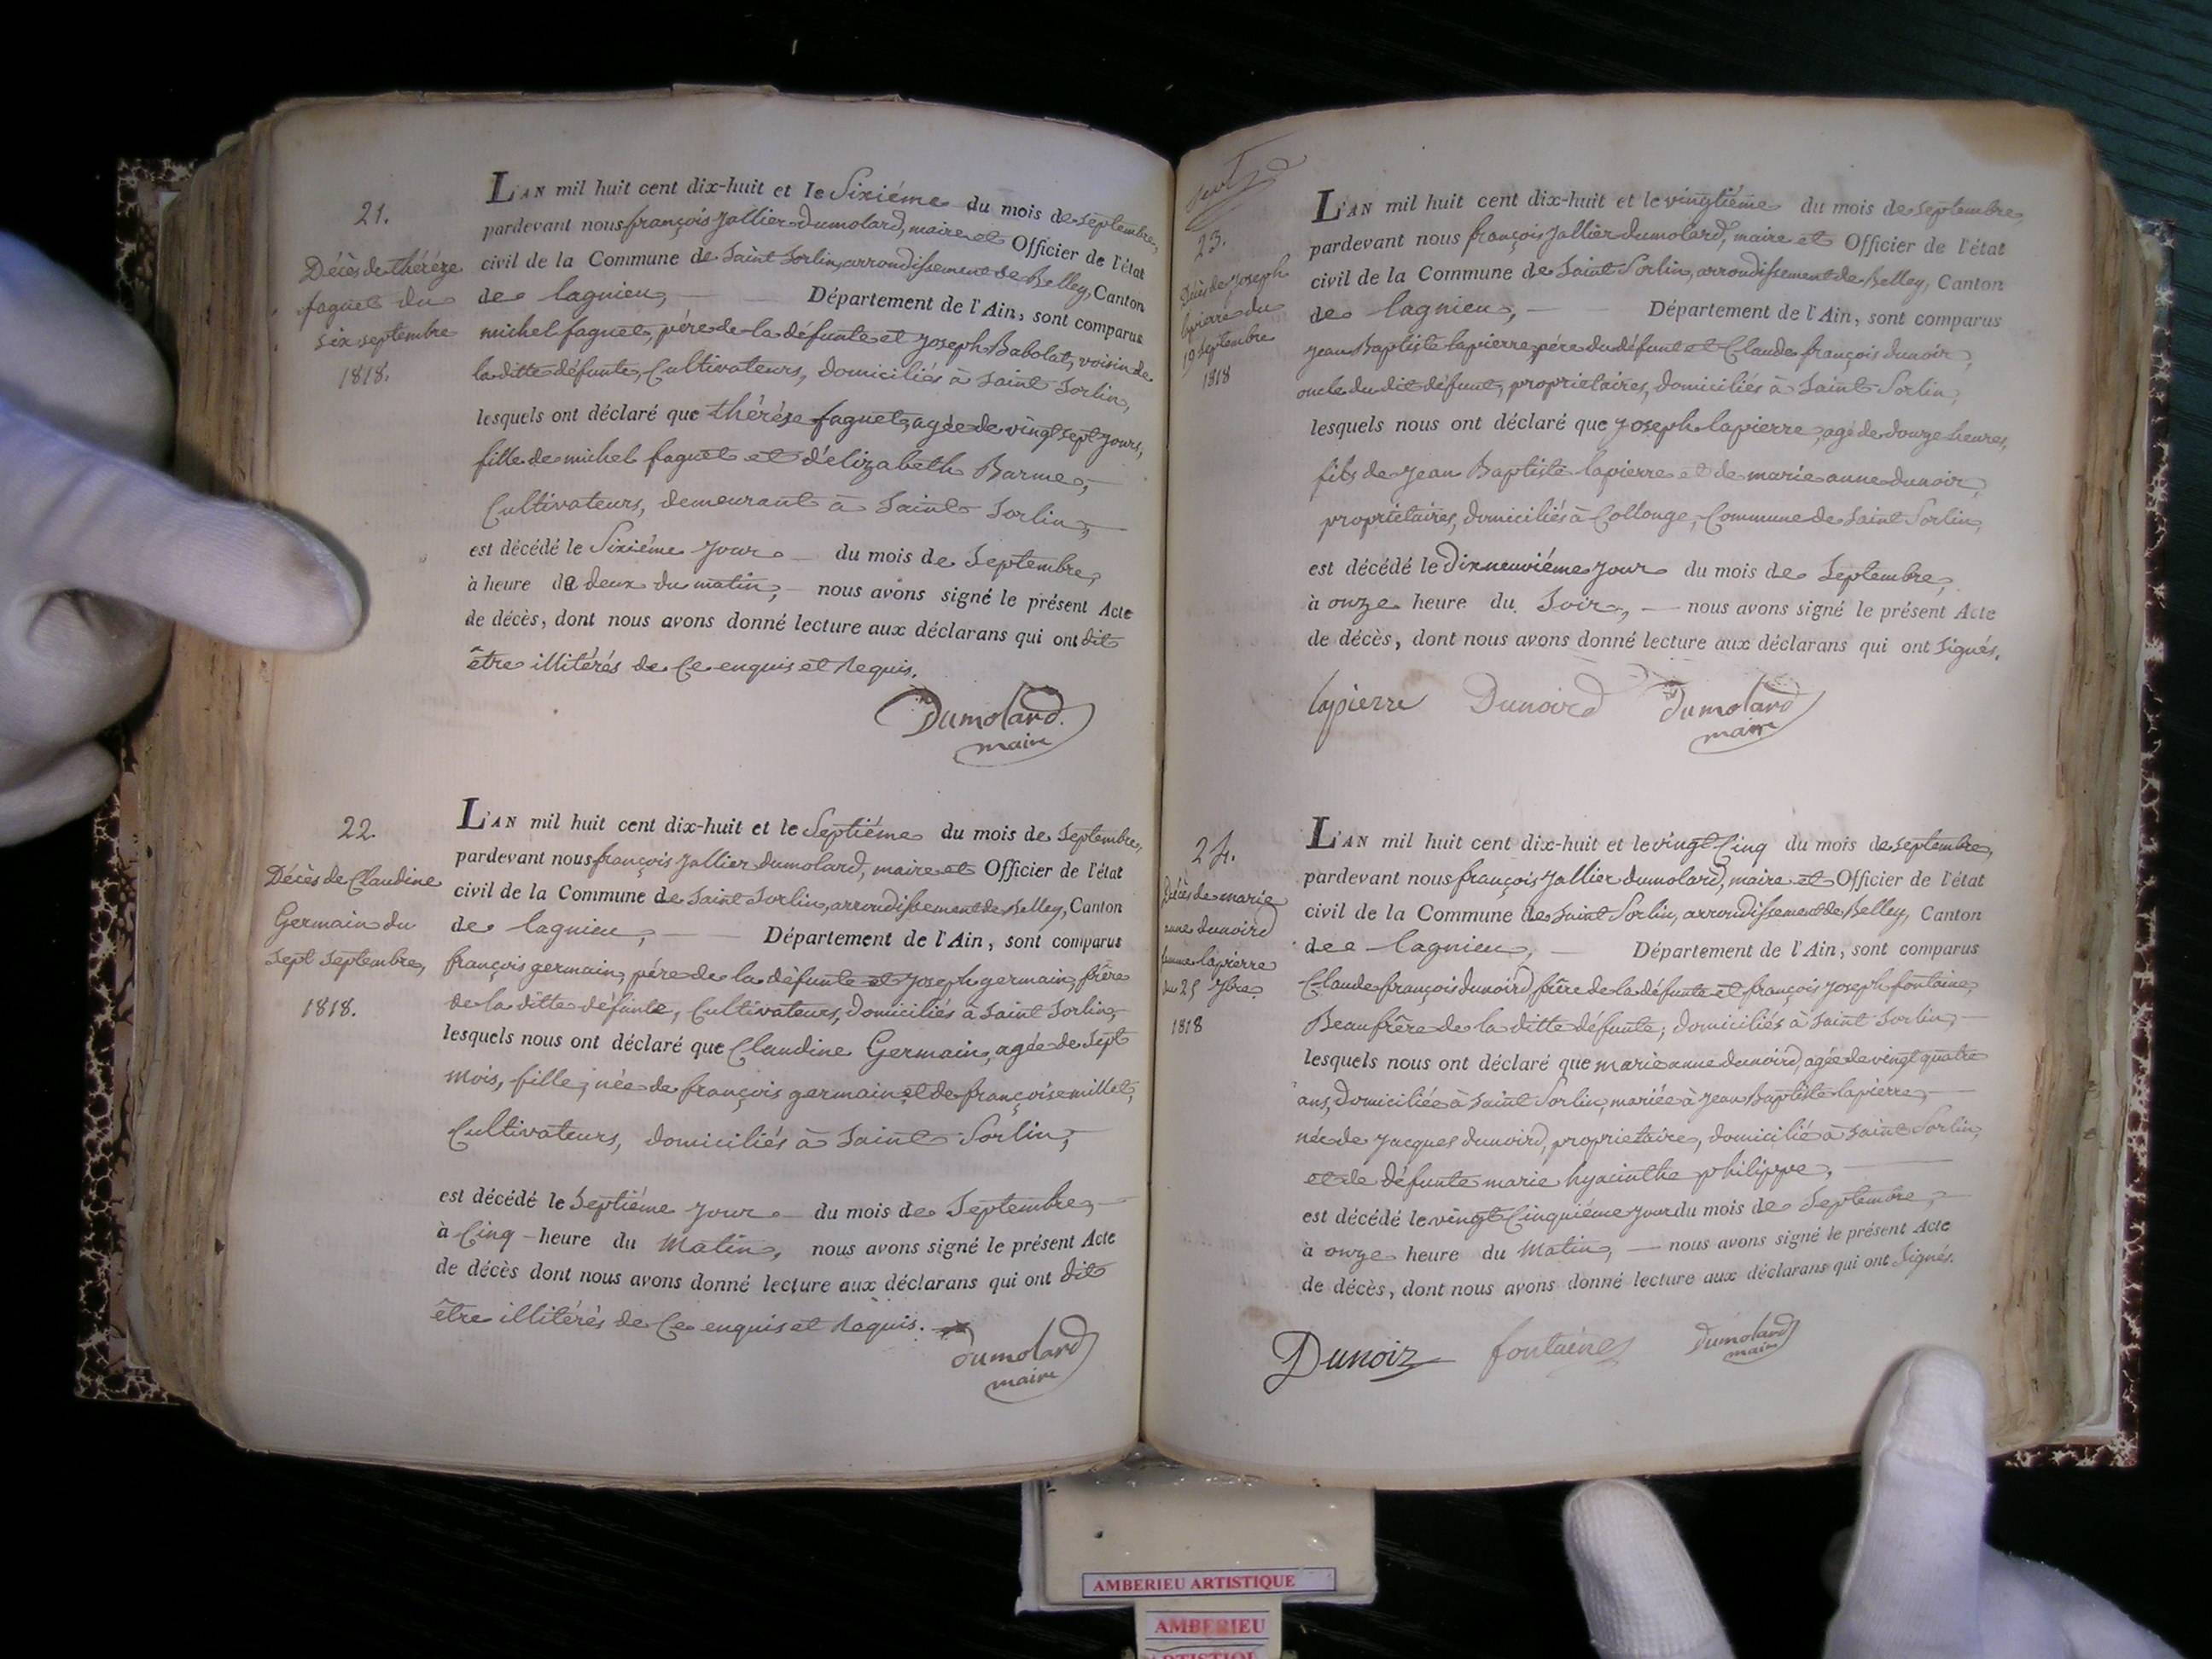 21.
Décès de thérèze
faguet du
six septembre
1818.
L'AN mil huit cent dix-huit et le Sixiéme du mois de septembre,
pardevant nous françois Jallier dumolard, maire et Officier de l'état
civil de la Commune de Saint Sorlin, arrondissement de Belley, Canton
de lagnieu, Département de l'Ain, sont comparus
michel faguet, pére de la défunte et joseph Babolat, voisin de
la ditte défunte, Cultivateurs, domiciliés à Saint Sorlin,
lesquels ont déclaré que thérèze faguet, agée de vingt sept jours,
fille de michel faguet et d'élizabeth Barme,
Cultivateurs, demeurant à Saint Sorlin,
est décédé le Sixiéme jour du mois de Septembre,
à heure de deux du matin, nous avons signé le présent Acte
de décès, dont nous avons donné lecture aux déclarans qui ont dit
être illitérés de Ce enquis et Requis.
Dumolard
maire
22.
Décès de Claudine
Germain du
Sept Septembre,
1818.
L'AN mil huit cent dix-huit et le Septiéme du mois de Septembre,
pardevant nous françois Jallier dumolard, maire et Officier de l'état
civil de la Commune de Saint Sorlin, arrondissement de Belley, Canton
de lagnieu, Département de l'Ain, sont comparus
françois germain, pére de la défunte et joseph germain, frère
de la ditte défunte, Cultivateurs, domiciliés à Saint Sorlin,
lesquels nous ont déclaré que Claudine Germain, agée de Sept
mois, fille, née de françois germain et de françoise millet,
Cultivateurs, domiciliés à Saint Sorlin,
est décédé le Septiéme jour du mois de Septembre,
à Cinq heure du Matin, nous avons signé le présent Acte
de décès dont nous avons donné lecture aux déclarans qui ont dit
être illitérés de Ce enquis et Requis.
Dumolard
maire
23.
Décès de joseph
lapierre du
19 septembre
1818
L'AN mil huit cent dix-huit et le vingtiéme du mois de septembre,
pardevant nous françois Jallier dumolard, maire et Officier de l'état
civil de la Commune de Saint Sorlin, arrondissement de Belley, Canton
de lagnieu, Département de l'Ain, sont comparus
jean Baptiste lapierre, pére du défunt et Claude françois dunoir,
oncle du dit défunt, proprietaires, domiciliés à Saint Sorlin,
lesquels nous ont déclaré que joseph lapierre, agé de douze heures,
fils de jean Baptiste lapierre et de marie anne dunoir,
proprietaires, domiciliés à Collonge, Commune de Saint Sorlin,
est décédé le Dix neuviéme jour du mois de Septembre,
à onze heure du Soir, nous avons signé le présent Acte
de décès, dont nous avons donné lecture aux déclarans qui ont Signés.
lapierre Dunoird Dumolard
maire
24.
Décès de marie
anne dunoird
femme lapierre
du 25 7bre
1818
L'AN mil huit cent dix-huit et le vingt Cinq du mois de septembre,
pardevant nous françois Jallier dumolard, maire et Officier de l'état
civil de la Commune de Saint Sorlin, arrondissement de Belley, Canton
de lagnieu, Département de l'Ain, sont comparus
Claude françois dunoird, frère de la défunte et françois joseph fontaine,
Beaufrère de la ditte défunte, domiciliés à Saint Sorlin,
lesquels nous ont déclaré que marie anne dunoird, agée de vingt quatre
ans, domiciliée à Saint Sorlin, mariée à jean Baptiste lapierre,
née de jacques dunoird, proprietaire, domicilié à Saint Sorlin,
et de défunte marie hyacinthe philippe,
est décédé le vingt Cinquiéme jour du mois de Septembre,
à onze heure du Matin, nous avons signé le présent Acte
de décès, dont nous avons donné lecture aux déclarans qui ont Signés.
Dunoir fontaine Dumolard
maire
AMBERIEU ARTISTIQUE
AMBERIEU
ARTISTIQUE